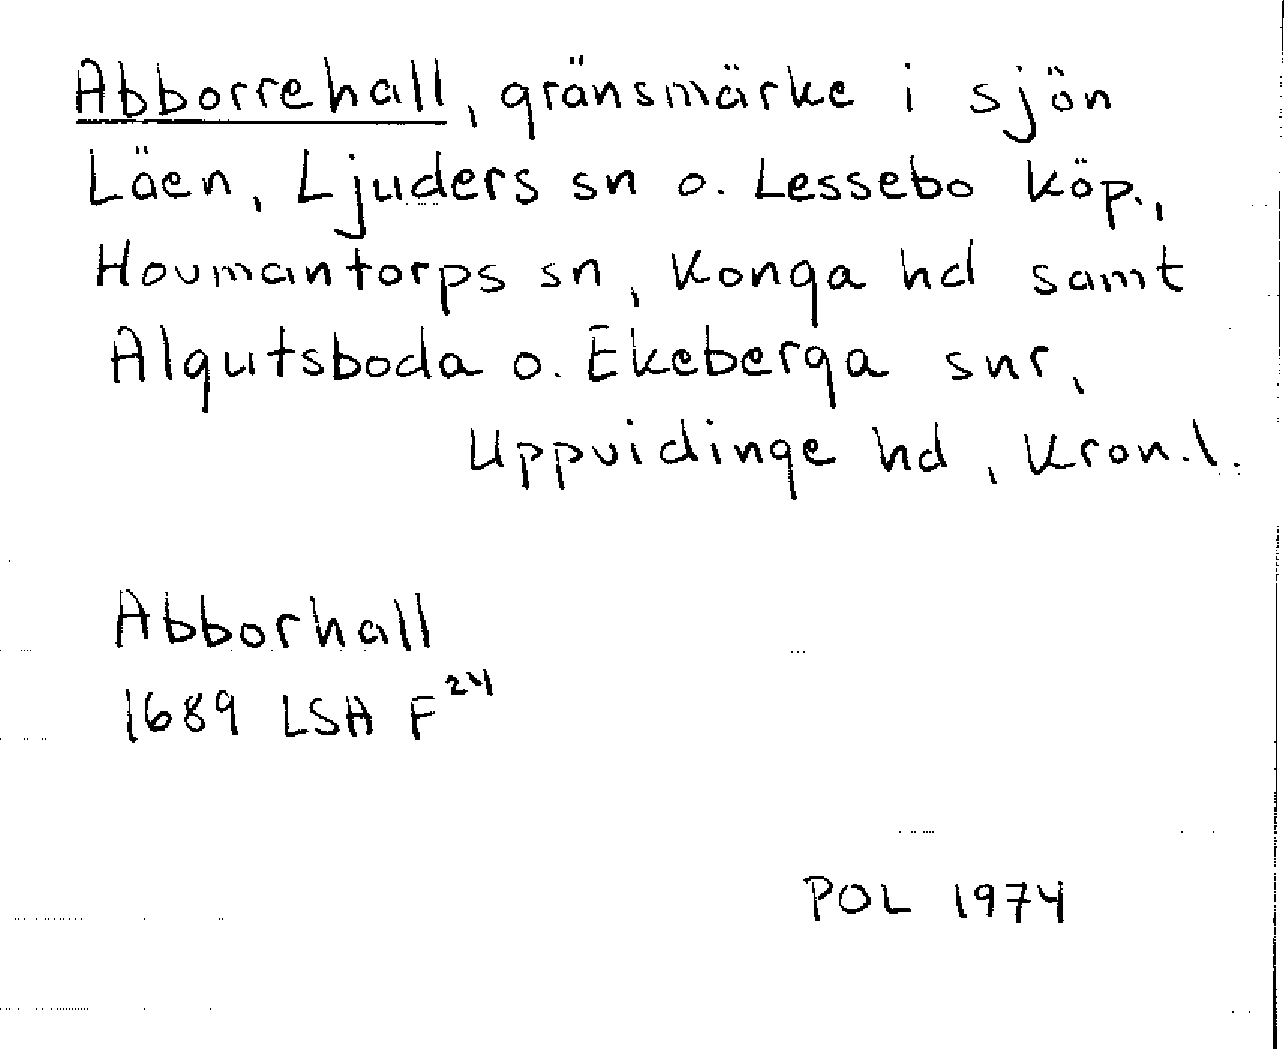 Abborrehall, gränsmärke i sjön
Läen, Ljuders sn o. Lessebo köp.,
Hovmantorps sn, Konga hd samt
Algutsboda o. Ekeberga snr,
Uppvidinge hd, Kron.l.
Abborhall
1689 LSA F²⁴
POL 1974